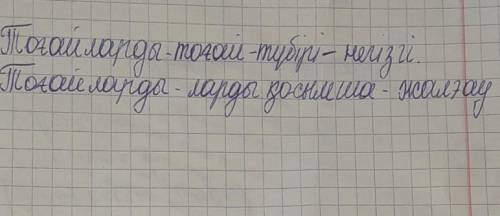 Тоғайларды-тоғай-түбірі-негізгі.
Тоғайларды-ларды қосымша-жалғау